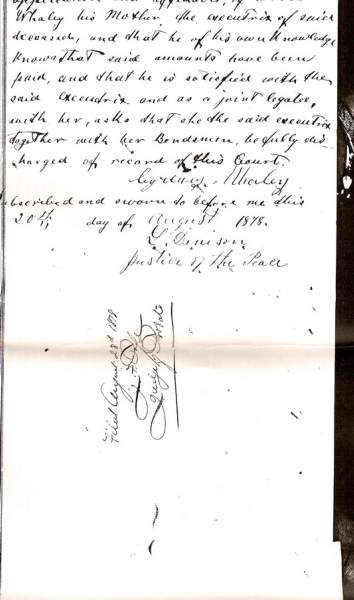 Whaley his Mother, the executrix of said
deceased, and that he of his own Knowledge
Knows that said amounts have been
paid, and that he is satisfied with the
said executrix and as a joint legatee,
with her, asks that she the said executrix
together with her Bondsmen, be fully dis
charged of record of this Court.
Whaley
scribed and sworn to before me this
20th day of August 1878.
L. Denison
Justice of the Peace
Filed August 23d 1878
Judge of Probate